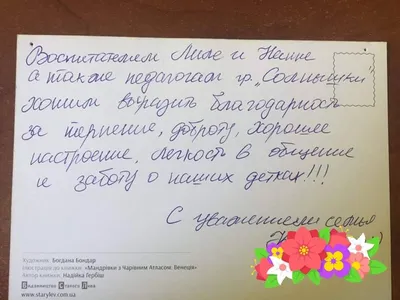 Воспитателем Лиле и Нанне
а также педагогам гр. „Солнышки”
хотим выразить благодарность
за терпение, доброту, хорошее
настроение, легкость в общение
и заботу о наших детках!!!
С уважением семья
Художник: Богдана Бондар
Ілюстрація до книжки: «Мандрівки з Чарівним Атласом. Венеція»
Автор книжки: Надійка Гербіш
Видавництво Старого Лева
www.starylev.com.ua